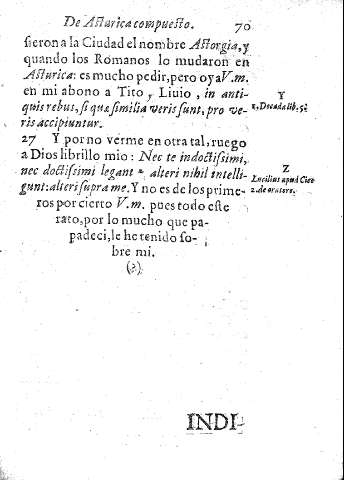 De Asturica compuesto. 70
sieron a la Ciudad el nombre Astorgia, y
quando los Romanos lo mudaron en
Asturica: es mucho pedir, pero oya V.m.
en mi abono a Tito y Liuio, in anti-
quis rebus, si quæ similia veris sunt, pro ve-
ris accipiuntur.
Y
1, Decada lib. 5.
27 Y por no verme en otra tal, ruego
a Dios librillo mio: Nec te indoctissimi,
nec doctissimi legant z. alteri nihil intelli-
gunt: alteri supra me. Y no es de los prime-
ros por cierto V.m. pues todo este
rato, por lo mucho que pa-
padeci, le he tenido so-
bre mi.
Z
Lucilius apud Cice
2. de oratore.
INDI-